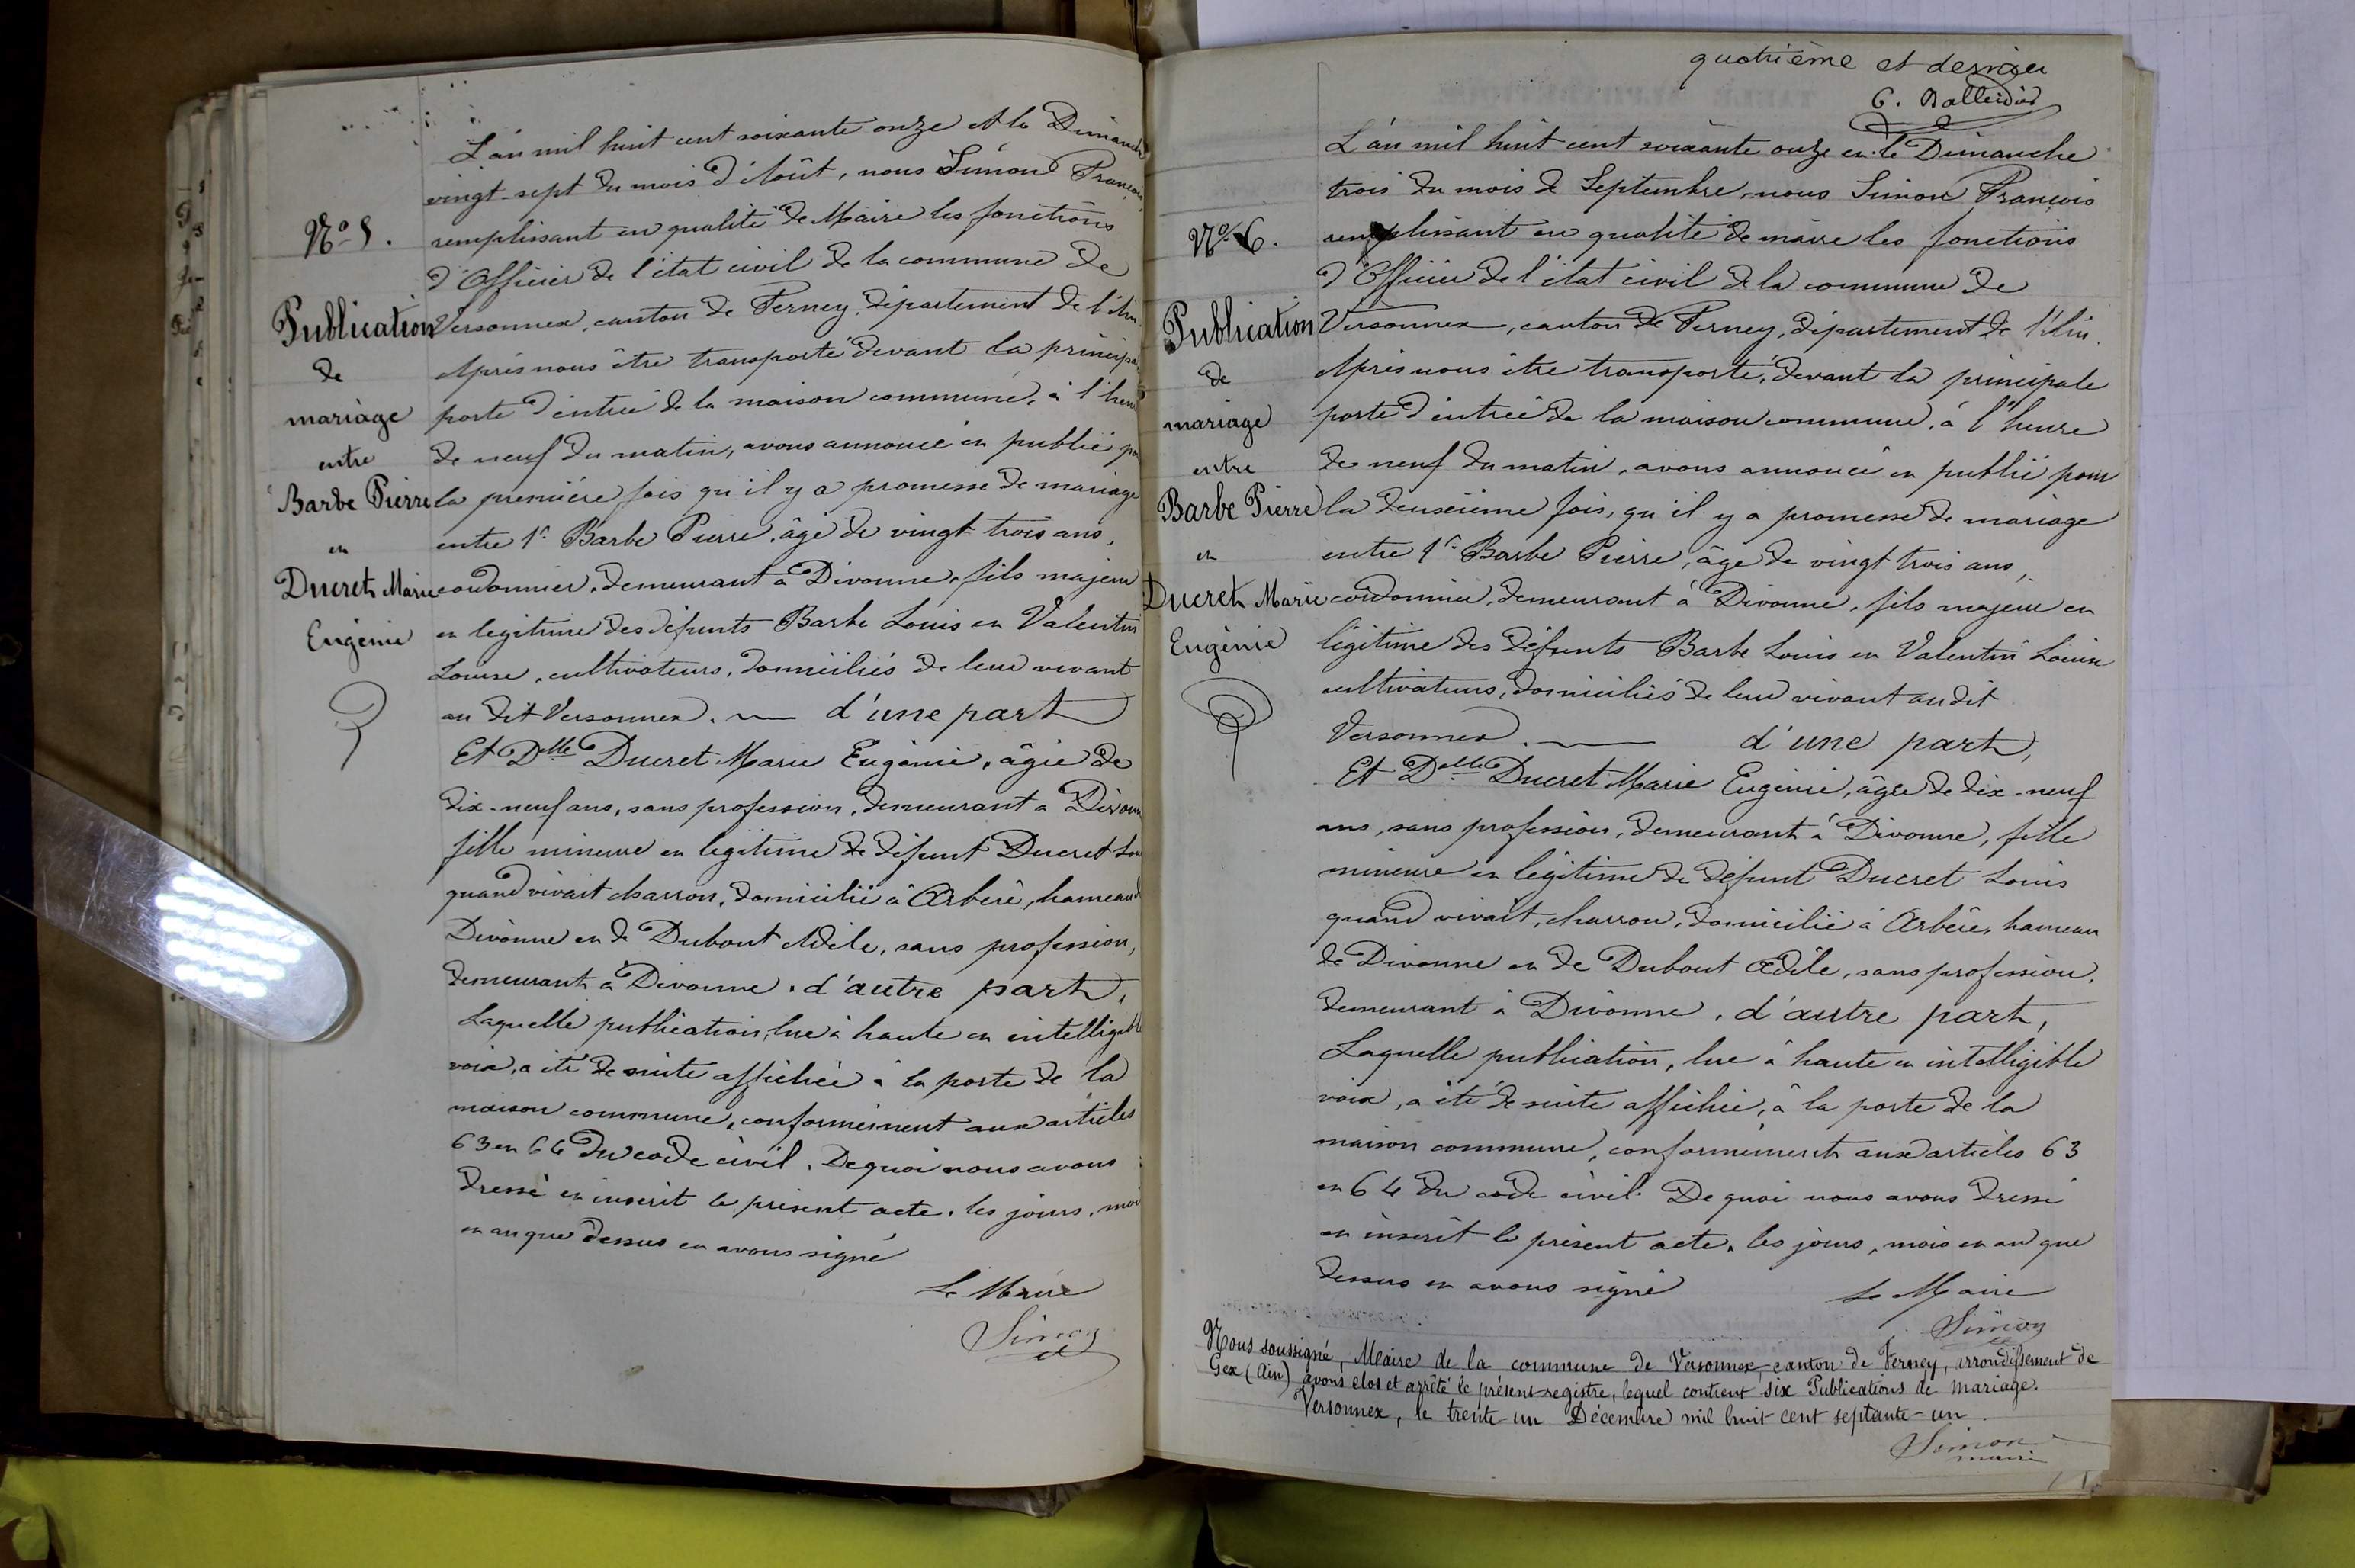 L'an mil huit cent soixante onze et le Dimanche
vingt-sept du mois d'Août, nous Simon François,
remplissant en qualité de Maire les fonctions
d'Officier de l'état civil de la commune de
Versonnex, canton de Ferney, département de l'Ain.
Après nous être transporté devant la principale
porte d'entrée de la maison commune, à l'heure
de neuf du matin, avons annoncé et publié pour
la première fois qu'il y a promesse de mariage
entre 1° Barbe Pierre, âgé de vingt trois ans,
cordonnier, demeurant à Divonne, fils majeur
et légitime des défunts Barbe Louis et Valentin
Louise, cultivateurs, domiciliés de leur vivant
au dit Versonnex. — d'une part
Et Dlle Ducret Marie Eugénie, âgée de
dix-neuf ans, sans profession, demeurant à Divonne
fille mineure et légitime de défunt Ducret Louis
quand vivait charron, domicilié à Arbère, hameau
Divonne et de Dubout Adèle, sans profession,
demeurant à Divonne, d'autre part,
Laquelle publication, lue à haute et intelligible
voix, a été de suite affichée à la porte de la
maison commune, conformément aux articles
63 et 64 du code civil. De quoi nous avons
dressé et inscrit le présent acte, les jours, mois
et an que dessus et avons signé
Le Maire
Simon
N° 5.
Publication
de
mariage
entre
Barbe Pierre
et
Ducret Marie
Eugénie
quatrième et dernier
L'an mil huit cent soixante onze et le Dimanche
trois du mois de Septembre, nous Simon François
remplissant en qualité de maire les fonctions
d'Officier de l'état civil de la commune de
Versonnex, canton de Ferney, département de l'Ain.
Après nous être transporté, devant la principale
porte d'entrée de la maison commune, à l'heure
de neuf du matin, avons annoncé et publié pour
la deuxième fois, qu'il y a promesse de mariage
entre 1° Barbe Pierre, âgé de vingt trois ans,
cordonnier, demeurant à Divonne, fils majeur et
légitime des défunts Barbe Louis et Valentin Louise
cultivateurs, domiciliés de leur vivant audit
Versonnex. — d'une part,
Et Delle Ducret Marie Eugénie, âgée de dix-neuf
ans, sans profession, demeurant à Divonne, fille
mineure et légitime de défunt Ducret Louis
quand vivait, charron, domicilié à Arbère, hameau
de Divonne et de Dubout Adèle, sans profession,
demeurant à Divonne, d'autre part,
Laquelle publication, lue à haute et intelligible
voix, a été de suite affichée, à la porte de la
maison commune, conformément aux articles 63
et 64 du code civil. De quoi nous avons dressé
et inscrit le présent acte, les jours, mois et an que
dessus et avons signé Le Maire
Simon
N° 6.
Publication
de
mariage
entre
Barbe Pierre
et
Ducret Marie
Eugénie
Nous soussigné, Maire de la commune de Versonnex, canton de Ferney, arrondissement de
Gex (Ain) avons clos et arrêté le présent registre, lequel contient six Publications de mariage.
Versonnex, le trente-un Décembre mil huit cent septante-un.
Simon
maire